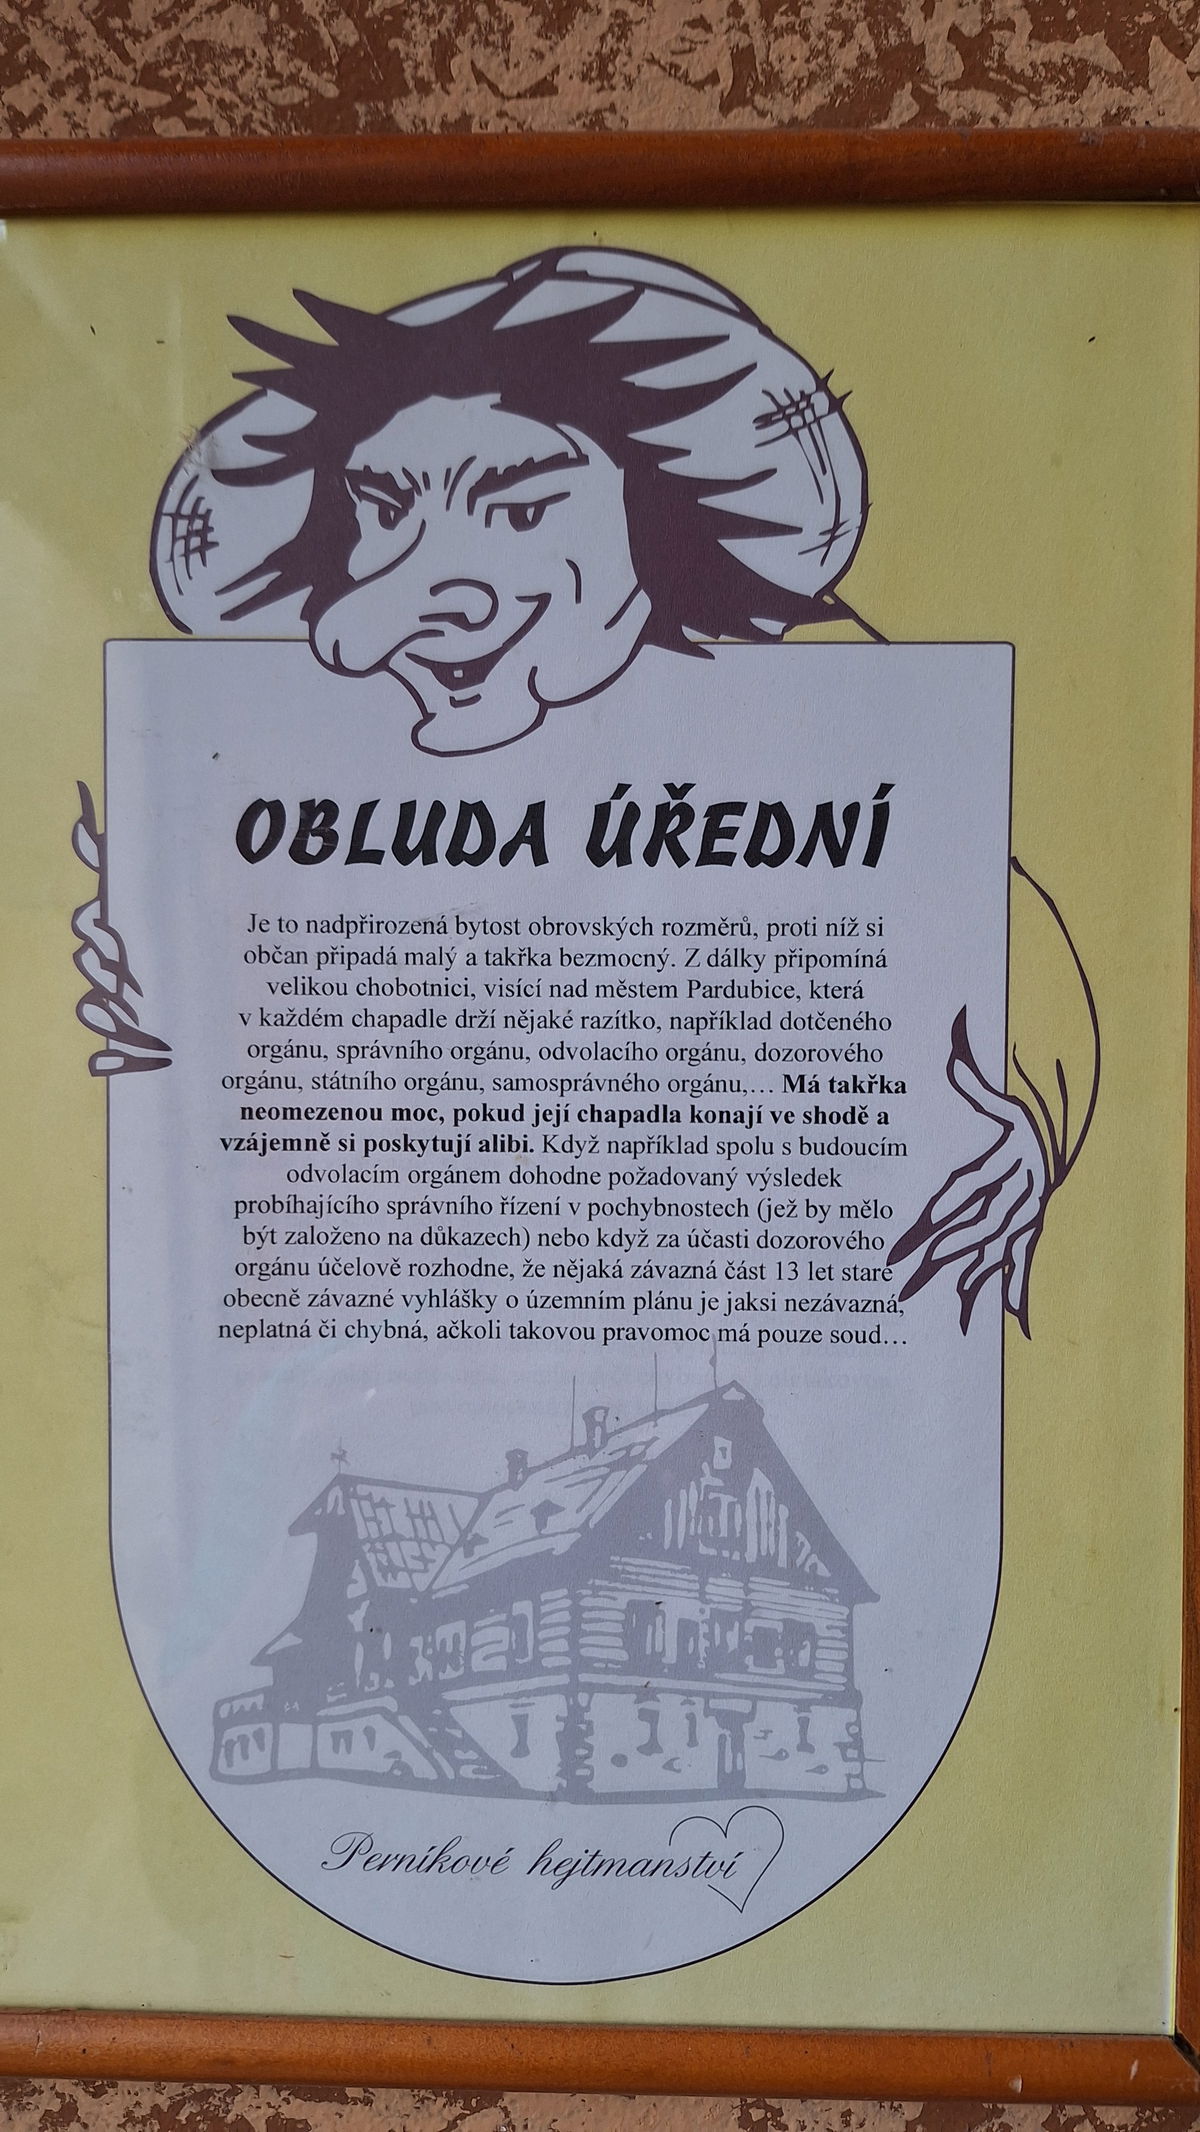 OBLUDA ÚŘEDNÍ
Je to nadpřirozená bytost obrovských rozměrů, proti níž si
občan připadá malý a takřka bezmocný. Z dálky připomíná
velikou chobotnici, visící nad městem Pardubice, která
v každém chapadle drží nějaké razítko, například dotčeného
orgánu, správního orgánu, odvolacího orgánu, dozorového
orgánu, státního orgánu, samosprávného orgánu,… Má takřka
neomezenou moc, pokud její chapadla konají ve shodě a
vzájemně si poskytují alibi. Když například spolu s budoucím
odvolacím orgánem dohodne požadovaný výsledek
probíhajícího správního řízení v pochybnostech (jež by mělo
být založeno na důkazech) nebo když za účasti dozorového
orgánu účelově rozhodne, že nějaká závazná část 13 let staré
obecně závazné vyhlášky o územním plánu je jaksi nezávazná,
neplatná či chybná, ačkoli takovou pravomoc má pouze soud…
Perníkové hejtmanství